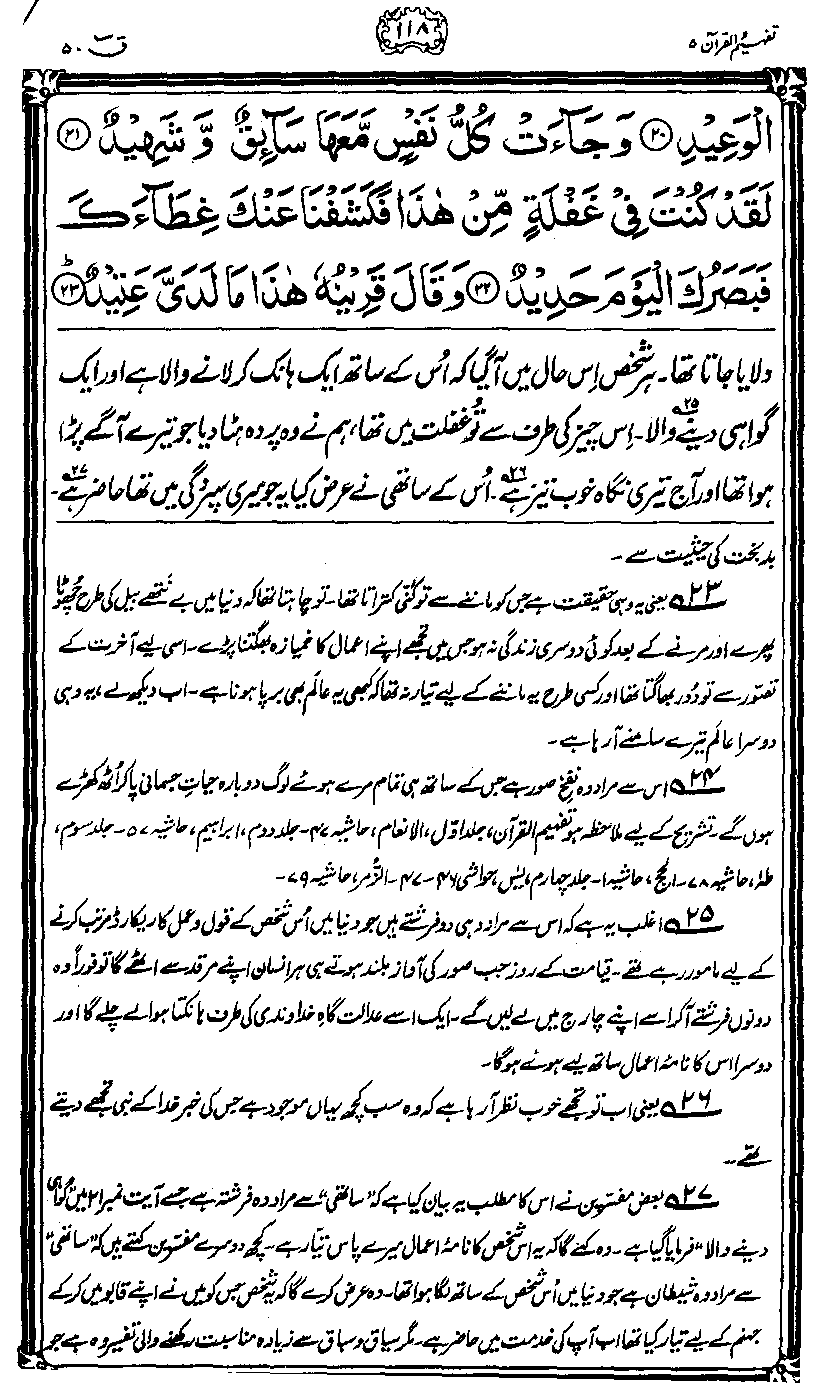 تفہیم القرآن ۵
۱۱۸
قٓ ۵۰
الْوَعِيْدِ ۝۲۰ وَ جَآءَتْ كُلُّ نَفْسٍ مَّعَهَا سَآىِٕقٌ وَّ شَهِيْدٌ ۝۲۱
لَقَدْ كُنْتَ فِیْ غَفْلَةٍ مِّنْ هٰذَا فَكَشَفْنَا عَنْكَ غِطَآءَكَ
فَبَصَرُكَ الْيَوْمَ حَدِيْدٌ ۝۲۲ وَ قَالَ قَرِيْنُهٗ هٰذَا مَا لَدَیَّ عَتِيْدٌ ۝۲۳ؕ
دلایا جاتا تھا۔ ہر شخص اِس حال میں آگیا کہ اُس کے ساتھ ایک ہانک کر لانے والا ہے اور ایک
گواہی دینے والا۔۲۵ اِس چیز کی طرف سے تُو غفلت میں تھا، ہم نے وہ پردہ ہٹا دیا جو تیرے آگے پڑا
ہوا تھا اور آج تیری نگاہ خوب تیز ہے۔۲۶ اُس کے ساتھی نے عرض کیا یہ جو میری سپردگی میں تھا حاضر ہے۔۲۷
بدبخت کی حیثیت سے۔
۲۳؎ یعنی یہ وہی حقیقت ہے جس کو ماننے سے تو کنّی کتراتا تھا۔ تو چاہتا تھا کہ دنیا میں بے نتھے بیل کی طرح چھُوٹا
پھرے اور مرنے کے بعد کوئی دوسری زندگی نہ ہو جس میں تجھے اپنے اعمال کا خمیازہ بھگتنا پڑے۔ اسی لیے آخرت کے
تصوّر سے تو دُور بھاگتا تھا اور کسی طرح یہ ماننے کے لیے تیار نہ تھا کہ کبھی یہ عالَم بھی برپا ہونا ہے۔ اب دیکھ لے، یہ وہی
دوسرا عالَم تیرے سامنے آرہا ہے۔
۲۴؎ اس سے مراد وہ نفخِ صور ہے جس کے ساتھ ہی تمام مرے ہوئے لوگ دوبارہ حیاتِ جسمانی پا کر اُٹھ کھڑے
ہوں گے۔ تشریح کے لیے ملاحظہ ہو تفہیم القرآن، جلد اوّل، الانعام، حاشیہ ۴۷۔ جلد دوم، ابراہیم، حاشیہ ۵۷۔ جلد سوم،
طٰہٰ، حاشیہ ۷۸۔ الحج، حاشیہ ۱۔ جلد چہارم، یٰس، حواشی ۴۶-۴۷۔ الزُّمر، حاشیہ ۷۹۔
۲۵؎ اغلب یہ ہے کہ اس سے مراد وہی دو فرشتے ہیں جو دنیا میں اُس شخص کے قول و عمل کا ریکارڈ مرتب کرنے
کے لیے مامور رہے تھے۔ قیامت کے روز جب صور کی آواز بلند ہوتے ہی ہر انسان اپنے مرقد سے اٹھے گا تو فوراً وہ
دونوں فرشتے آکر اسے اپنے چارج میں لے لیں گے۔ ایک اسے عدالت گاہِ خداوندی کی طرف ہانکتا ہوا لے چلے گا اور
دوسرا اس کا نامۂ اعمال ساتھ لیے ہوئے ہوگا۔
۲۶؎ یعنی اب تو تجھے خوب نظر آرہا ہے کہ وہ سب کچھ یہاں موجود ہے جس کی خبر خدا کے نبی تجھے دیتے
تھے۔
۲۷؎ بعض مفسّرین نے اس کا مطلب یہ بیان کیا ہے کہ ”ساتھی“ سے مراد وہ فرشتہ ہے جسے آیت نمبر ۲۱ میں ”گواہی
دینے والا“ فرمایا گیا ہے۔ وہ کہے گا کہ یہ اس شخص کا نامۂ اعمال میرے پاس تیّار ہے۔ کچھ دوسرے مفسّرین کہتے ہیں کہ ”ساتھی“
سے مراد وہ شیطان ہے جو دنیا میں اُس شخص کے ساتھ لگا ہوا تھا۔ وہ عرض کرے گا کہ یہ شخص جس کو میں نے اپنے قابو میں کر کے
جہنم کے لیے تیار کیا تھا اب آپ کی خدمت میں حاضر ہے۔ مگر سیاق و سباق سے زیادہ مناسبت رکھنے والی تفسیر وہ ہے جو